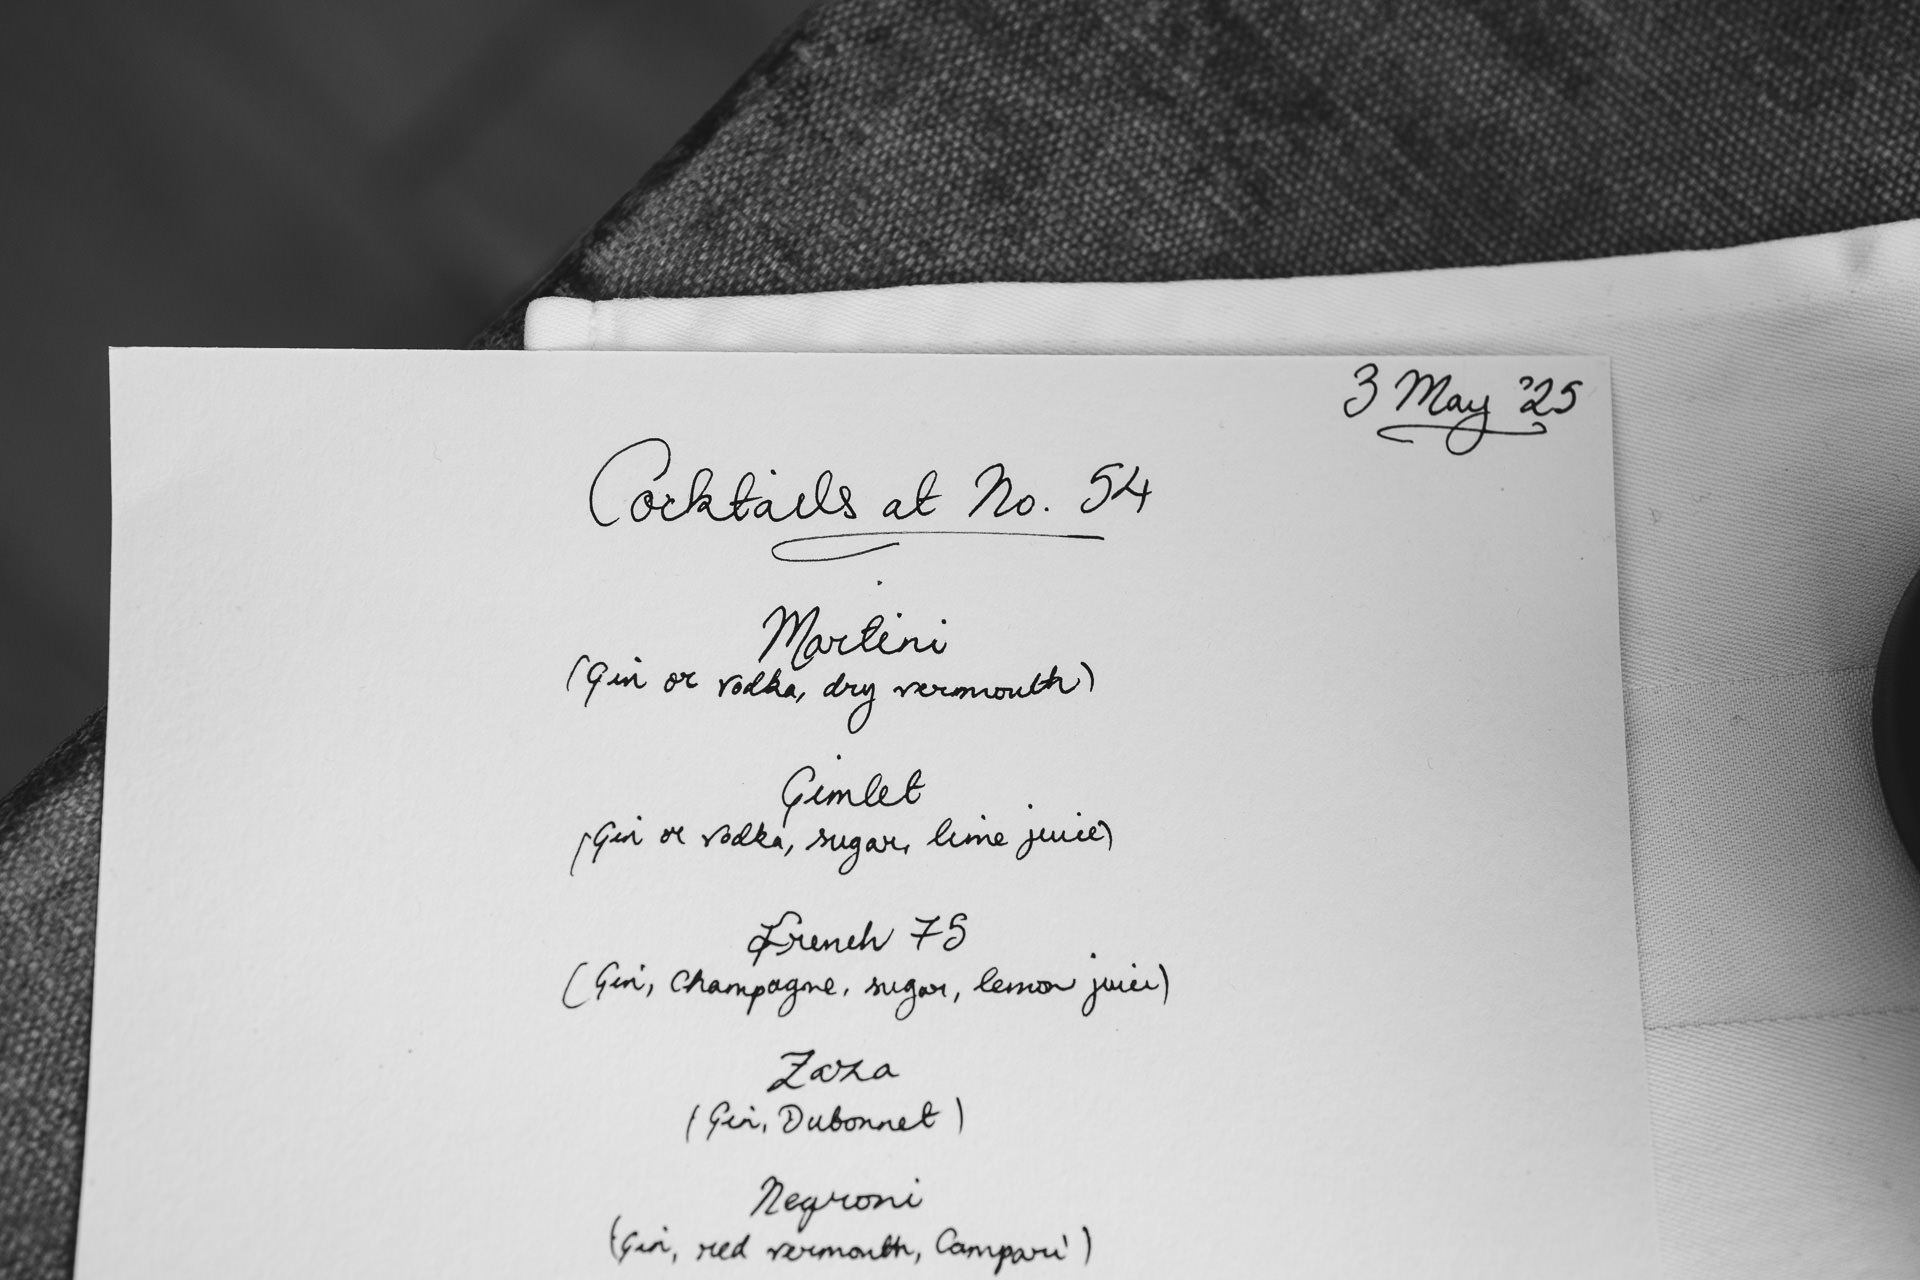 3 May '25
Cocktails at No. 54
Martini
(Gin or vodka, dry vermouth)
Gimlet
(Gin or vodka, sugar, lime juice)
French 75
(Gin, Champagne, sugar, lemon juice)
Zaza
(Gin, Dubonnet)
Negroni
(Gin, red vermouth, Campari)